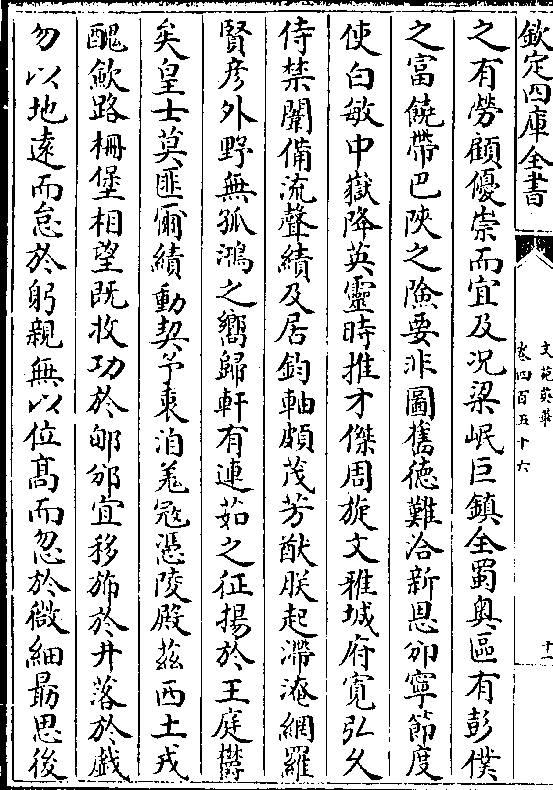 欽定四庫全書
文苑英華
卷四百五十六
十一
之有勞顧優崇而宜及况梁岷巨鎮全蜀奥區有彭僕
之富饒帶巴陜之險要非圖舊德難洽新恩邠寧節度
使白敏中嶽降英靈時推才傑周旋文雅城府寛弘久
侍禁闈備流聲績及居鈞軸頗茂芳猷朕起滯淹網羅
賢彦外野無孤鴻之嚮歸軒有連茹之征揚於王庭欝
矣皇士莫匪爾績動契予衷洎羗冦憑陵殿兹西土戎
醜歛路柵堡相望既收功於邠邠宜移斾於井落於戲
勿以地逺而怠於躬親無以位髙而忽於微細勗思後